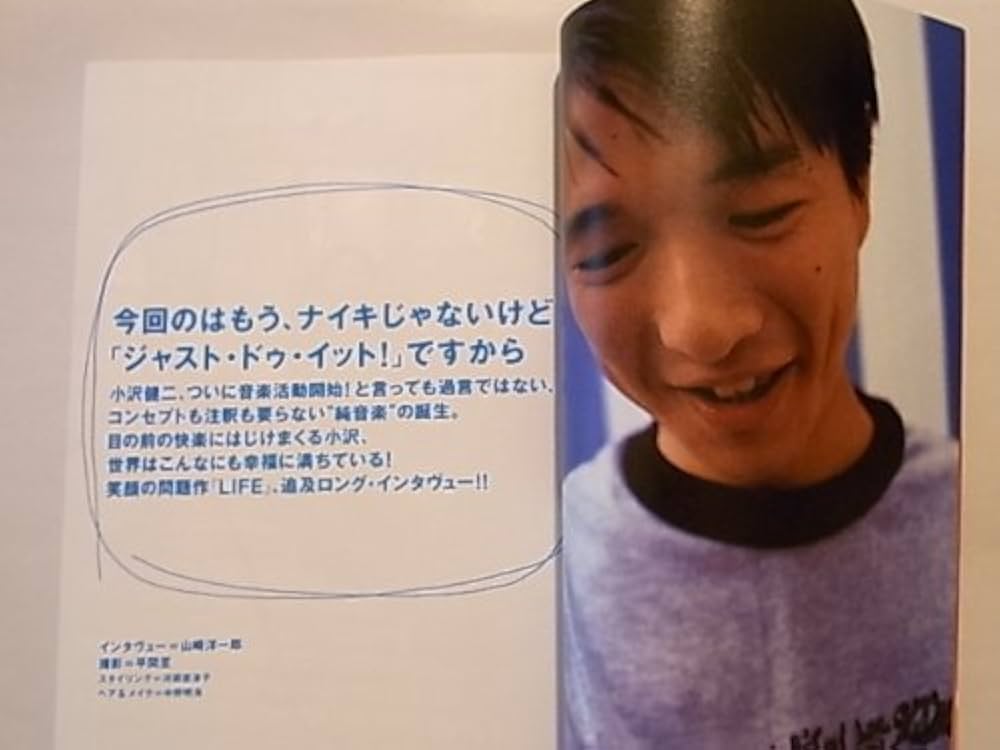 今回のはもう、ナイキじゃないけど
「ジャスト・ドゥ・イット!」ですから
小沢健二、ついに音楽活動開始!と言っても過言ではない、
コンセプトも注釈も要らない"純音楽"の誕生。
目の前の快楽にはじけまくる小沢、
世界はこんなにも幸福に満ちている!
笑顔の問題作『LIFE』、追及ロング・インタヴュー!!
インタヴュー=山崎洋一郎
撮影=平間至
スタイリング=
ヘア&メイク=中野明海